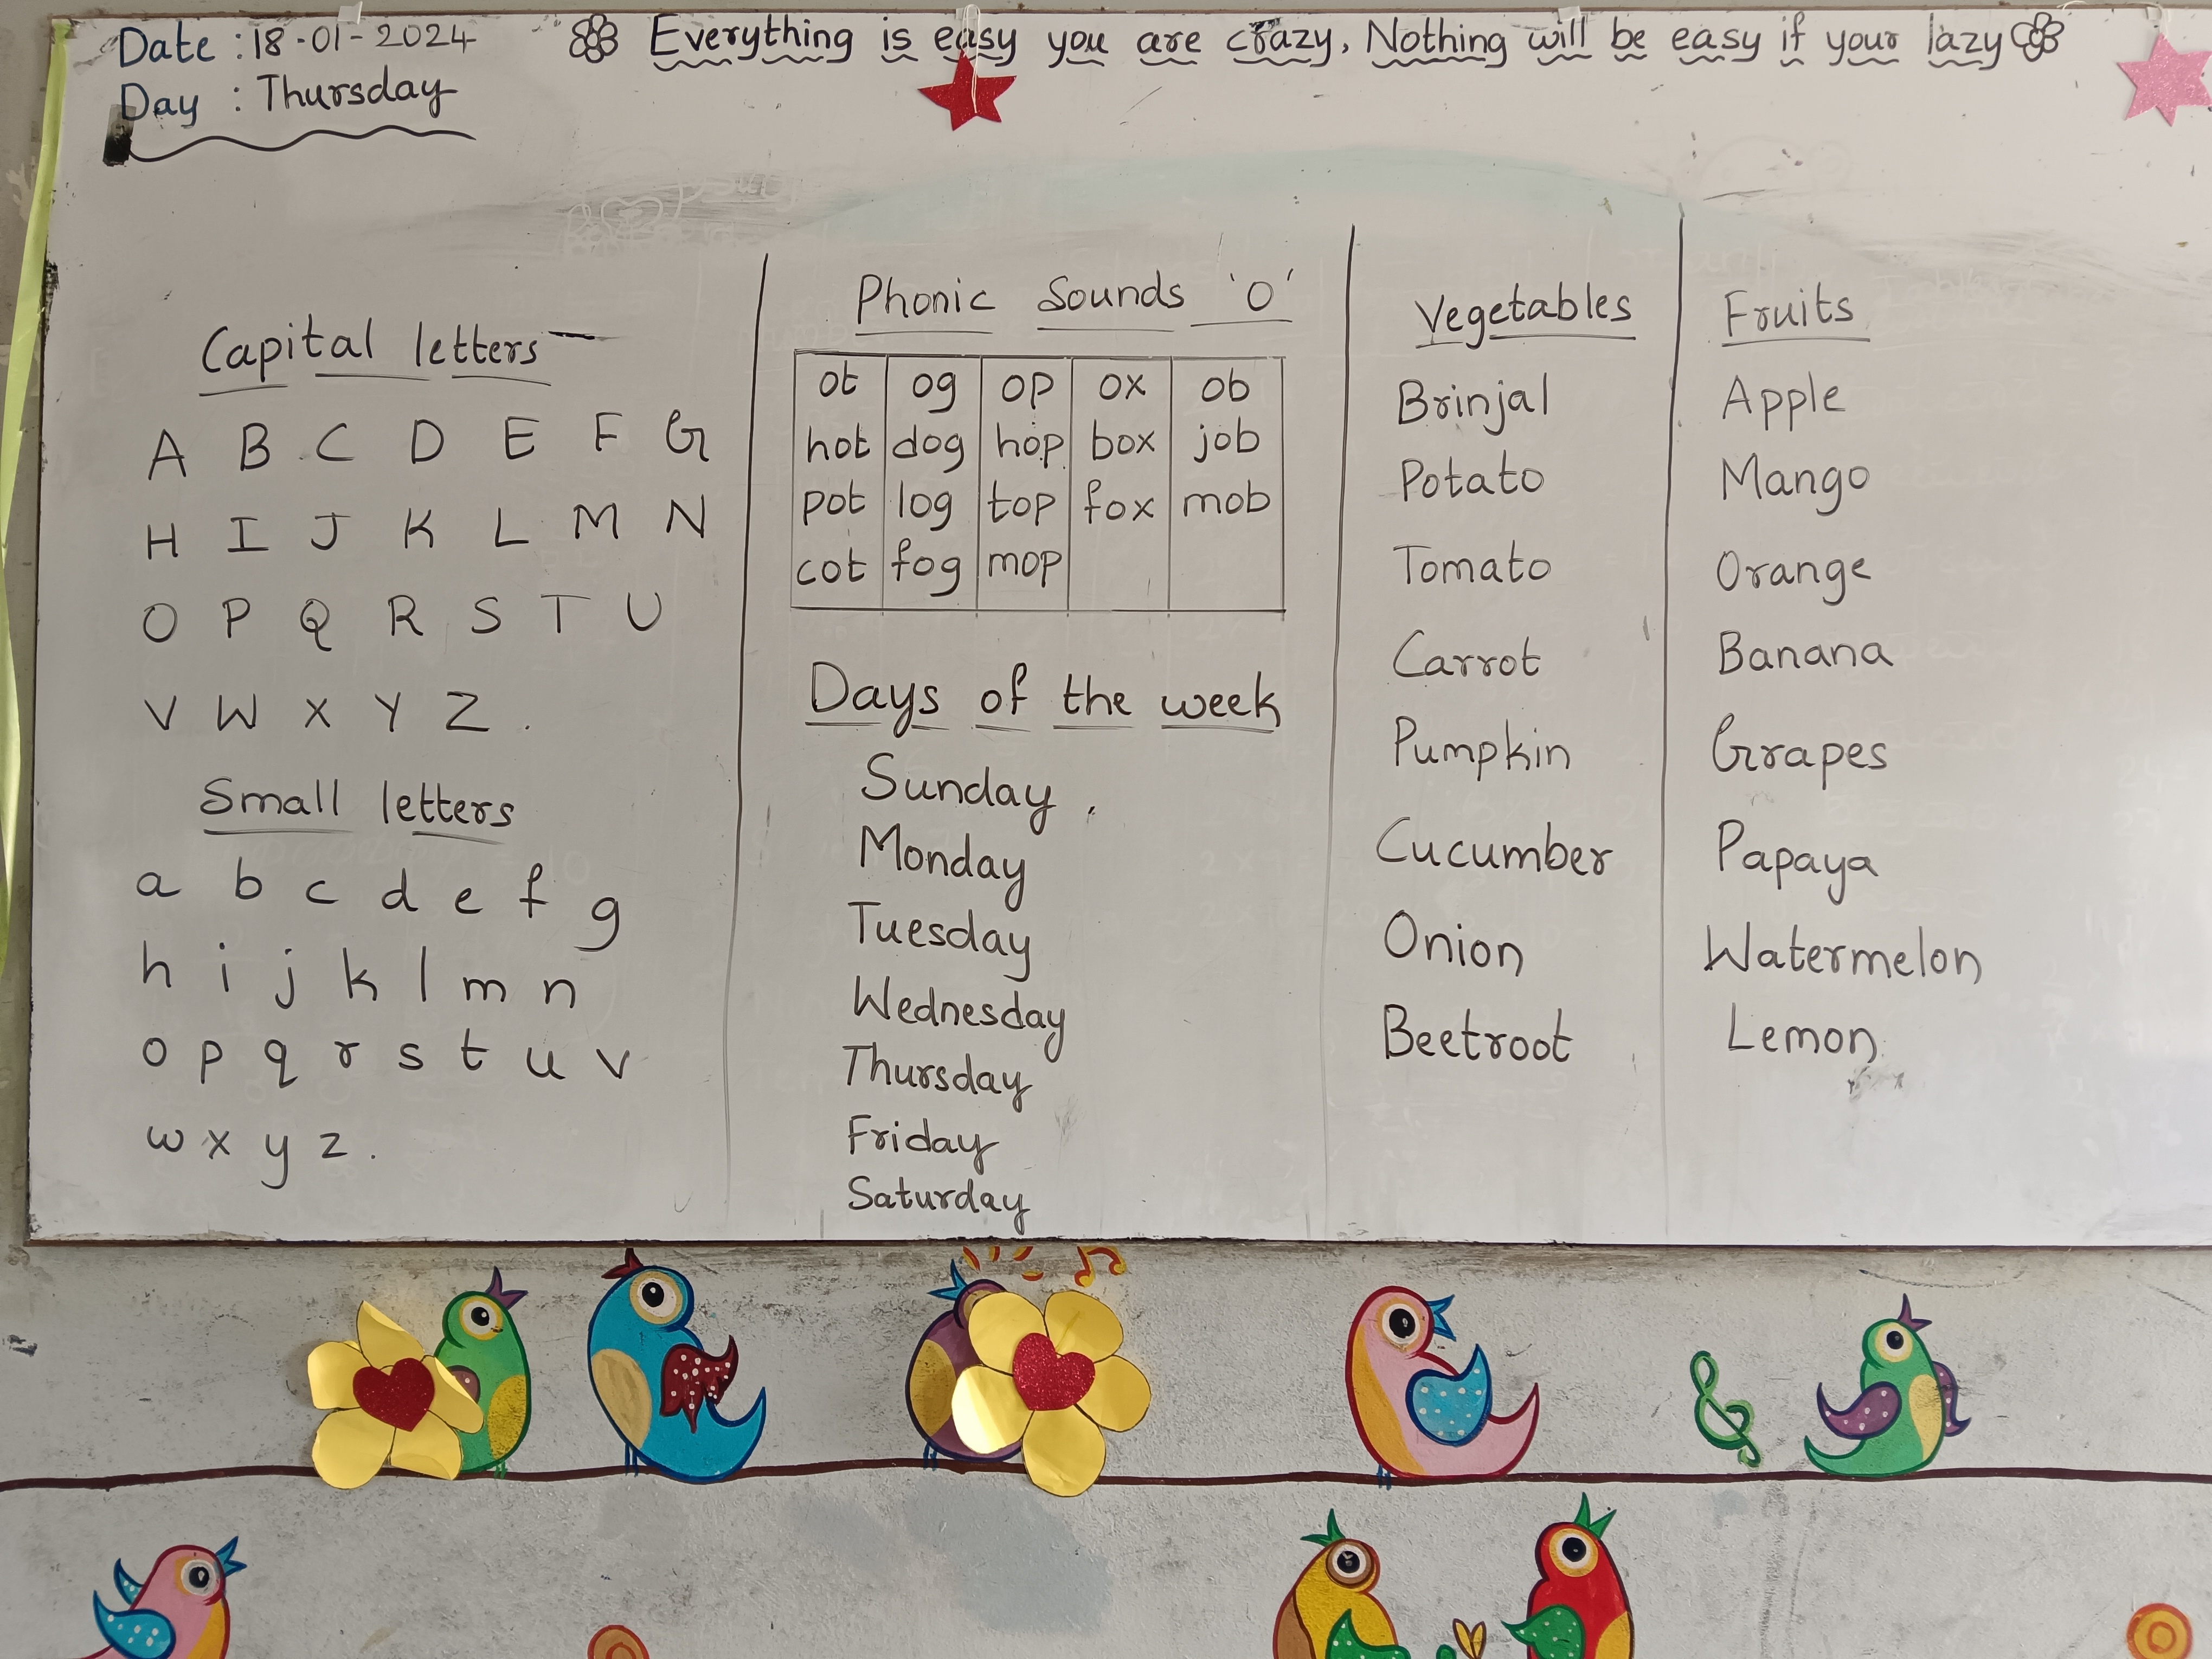 Date : 18-01-2024
Day : Thursday
Everything is easy you are crazy, Nothing will be easy if your lazy
Capital letters
A B C D E F G
H I J K L M N
O P Q R S T U
V W X Y Z .
Small letters
a b c d e f g
h i j k l m n
o p q r s t u v
w x y z .
Phonic Sounds 'O'
ot og op ox ob
hot dog hop box job
pot log top fox mob
cot fog mop
Days of the week
Sunday .
Monday
Tuesday
Wednesday
Thursday
Friday
Saturday
Vegetables
Brinjal
Potato
Tomato
Carrot
Pumpkin
Cucumber
Onion
Beetroot
Fruits
Apple
Mango
Orange
Banana
Grapes
Papaya
Watermelon
Lemon